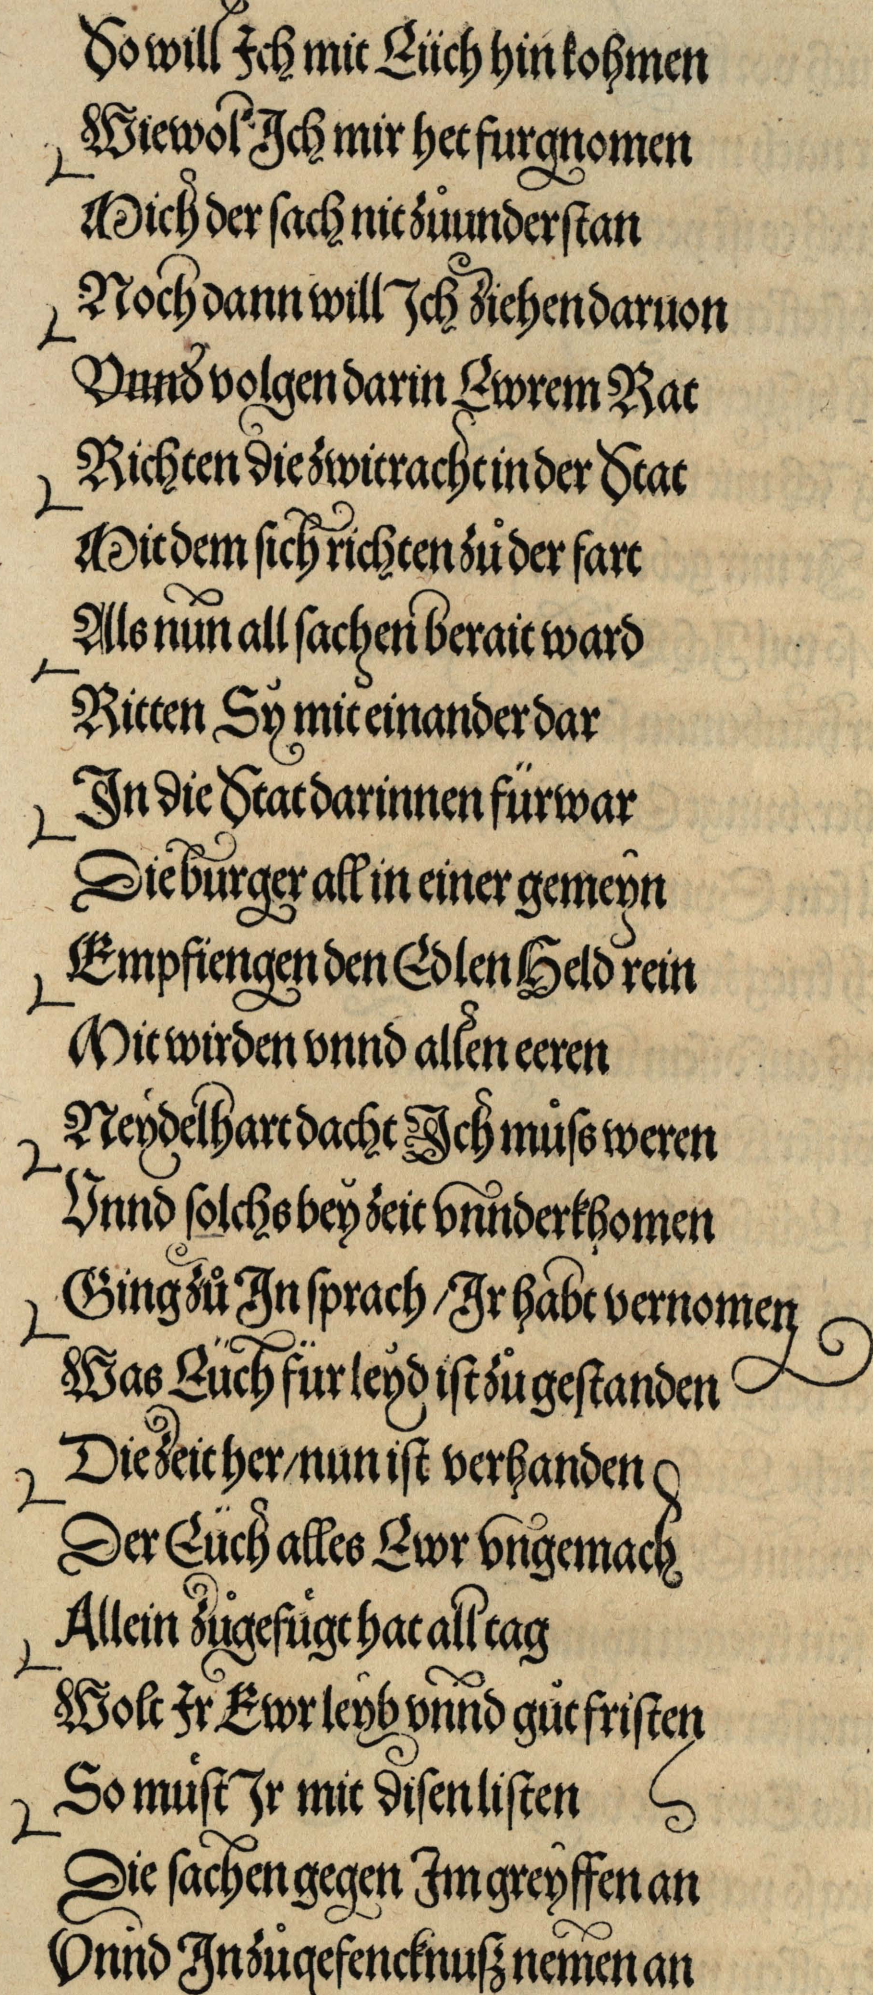 So will Ich mit Eüch hin kohmen
Wiewol Ich mir het furgnomen
Mich der sach nit zůunderstan
Noch dann will Ich ziehen daruon
Vnnd volgen darin Ewrem Rat
Richten die zwitracht in der Stat
Mit dem sich richten zů der fart
Alls nun all sachen berait ward
Ritten Sy mit einander dar
In die Stat darinnen fürwar
Die burger all in einer gemeyn
Empfiengen den Edlen Held rein
Mit wirden vnnd allen eeren
Neydelhart dacht Ich můss weren
Vnnd solchs bey zeit vnnderkhomen
Ging zů In sprach / Ir habt vernomen
Was Eüch für leyd ist zůgestanden
Die zeit her / nun ist verhanden
Der Eüch alles Ewr vngemach
Allein zůgefůgt hat all tag
Wolt Ir Ewr leyb vnnd gůt fristen
So můst Ir mit disen listen
Die sachen gegen Im greyffen an
Vnnd In zůgefencknusz nemen an